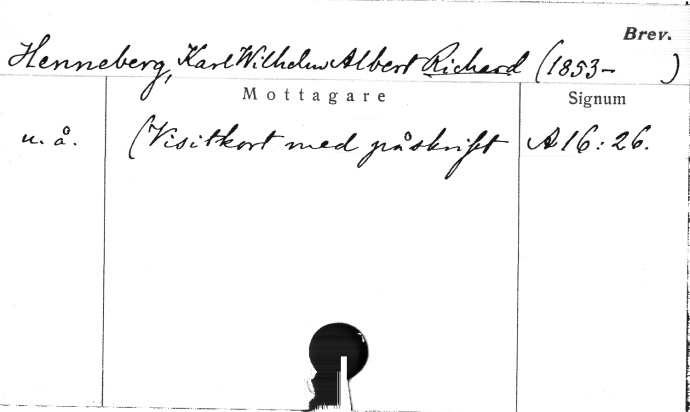 Brev.
Henneberg, Karl Wilhelm Albert Richard (1853- )
Mottagare Signum
u. å. (Visitkort med påskrift A 16:26.